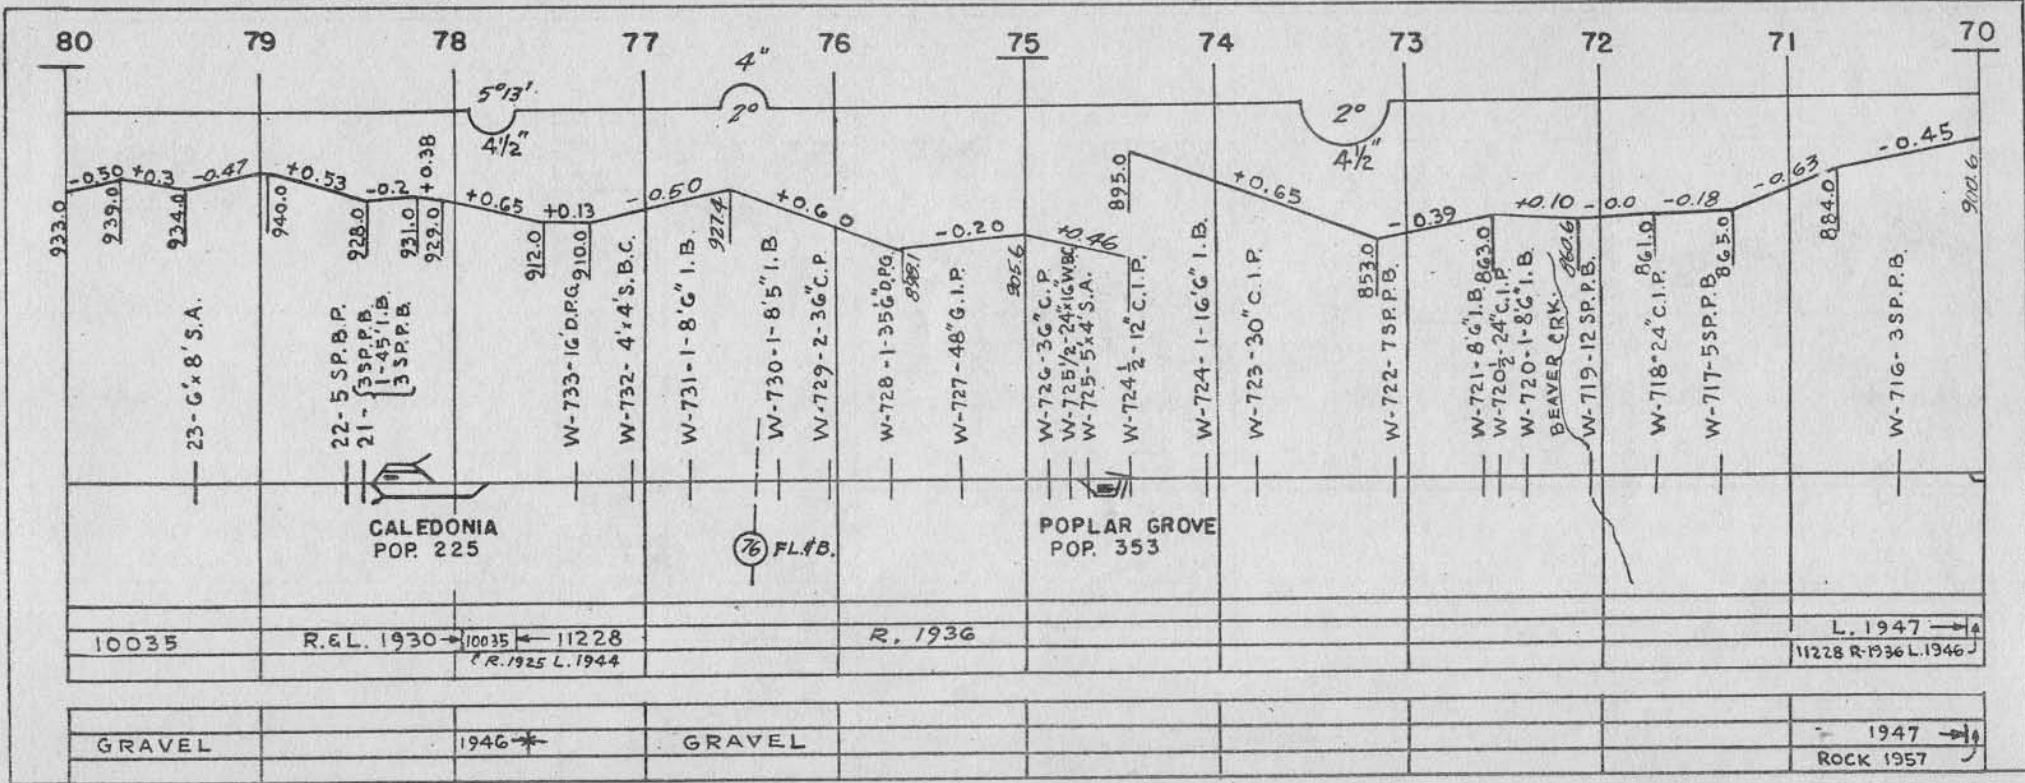 80 79 78 77 76 75 74 73 72 71 70
4"
5°13' 2° 2°
4½" 4½"
-0.50 +0.3 -0.47 +0.53 -0.2 +0.38 +0.65 +0.13 -0.50 +0.60 -0.20 +0.46 +0.65 -0.39 +0.10 -0.0 -0.18 -0.63 -0.45
933.0 939.0 934.0 940.0 928.0 931.0 929.0 912.0 910.0 927.4 898.1 905.6 895.0 853.0 863.0 860.6 861.0 865.0 884.0 900.6
23-6'x8' S.A.
22-5 SP. B.P.
21-{3 SP. P.B.
1-45' I.B.
3 SP. P.B.
W-733-16' D.P.G.
W-732-4'x4' S.B.C.
W-731-1-8'6" I.B.
W-730-1-8'5" I.B.
W-729-2-36" C.P.
W-728-1-35'6" D.P.G.
W-727-48" G.I.P.
W-726-36" C.P.
W-725½-24"x16" W.BC
W-725-5x4 S.A.
W-724½-12" C.I.P.
W-724-1-16'6" I.B.
W-723-30" C.I.P.
W-722-7 SP. P.B.
W-721-8'6" I.B.
W-720½-24" C.I.P.
W-720-1-8'6" I.B.
BEAVER CRK.
W-719-12 SP. P.B.
W-718-24" C.I.P.
W-717-5 SP. P.B.
W-716-3 SP. P.B.
CALEDONIA
POP. 225
76 FL.&B.
POPLAR GROVE
POP. 353
10035 R.&L. 1930 → 10035 ← 11228 R. 1936 L. 1947 →
R. 1925 L. 1944 11228 R-1936 L. 1946
GRAVEL 1946 GRAVEL 1947 →
ROCK 1957